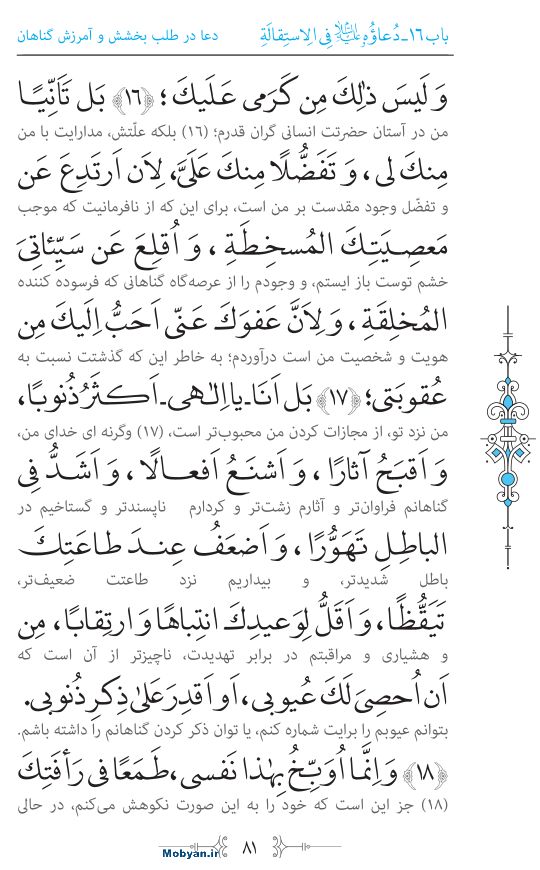 باب ۱۶ـ دُعاؤُهُ فِی الِاستِقالَةِ
دعا در طلب بخشش و آمرزش گناهان
وَ لَیسَ ذٰلِكَ مِن کَرَمی عَلَیكَ ؛ ﴿۱۶﴾ بَل تَأَنّیًا
من در آستان حضرتت انسانی گران قدرم؛ (۱۶) بلکه علّتش، مدارایت با من
مِنكَ لی ، وَ تَفَضُّلًا مِنكَ عَلَیَّ، لِاَن اَرتَدِعَ عَن
و تفضّل وجود مقدست بر من است، برای این که از نافرمانیت که موجب
مَعصِیَتِكَ المُسخِطَةِ ، وَ اُقلِعَ عَن سَیِّئاتِیَ
خشم توست باز ایستم، و وجودم را از عرصه‌گاه گناهانی که فرسوده کننده
المُخلِقَةِ ، وَ لِاَنَّ عَفوَكَ عَنّی اَحَبُّ اِلَیكَ مِن
هویت و شخصیت من است درآوردم؛ به خاطر این که گذشتت نسبت به
عُقوبَتی؛ ﴿۱۷﴾ بَل اَنَا ـ یا اِلٰهی ـ اَکثَرُ ذُنوبًا،
من نزد تو، از مجازات کردن من محبوب‌تر است، (۱۷) وگرنه ای خدای من،
وَ اَقبَحُ آثارًا ، وَ اَشنَعُ اَفعالًا ، وَ اَشَدُّ فِی
گناهانم فراوان‌تر و آثارم زشت‌تر و کردارم ناپسندتر و گستاخیم در
الباطِلِ تَهَوُّرًا ، وَ اَضعَفُ عِندَ طاعَتِكَ
باطل شدیدتر، و بیداریم نزد طاعتت ضعیف‌تر،
تَیَقُّظًا، وَ اَقَلُّ لِوَعیدِكَ انتِباهًا وَ ارتِقابًا، مِن
و هشیاری و مراقبتم در برابر تهدیدت، ناچیزتر از آن است که
اَن اُحصِیَ لَكَ عُیوبی، اَو اَقدِرَ عَلیٰ ذِکرِ ذُنوبی.
بتوانم عیوبم را برایت شماره کنم، یا توان ذکر کردن گناهانم را داشته باشم.
﴿۱۸﴾ وَ اِنَّما اُوَبِّخُ بِهٰذا نَفسی، طَمَعًا فی رَأفَتِكَ
(۱۸) جز این است که خود را به این صورت نکوهش می‌کنم، در حالی
۸۱
Mobyan.ir